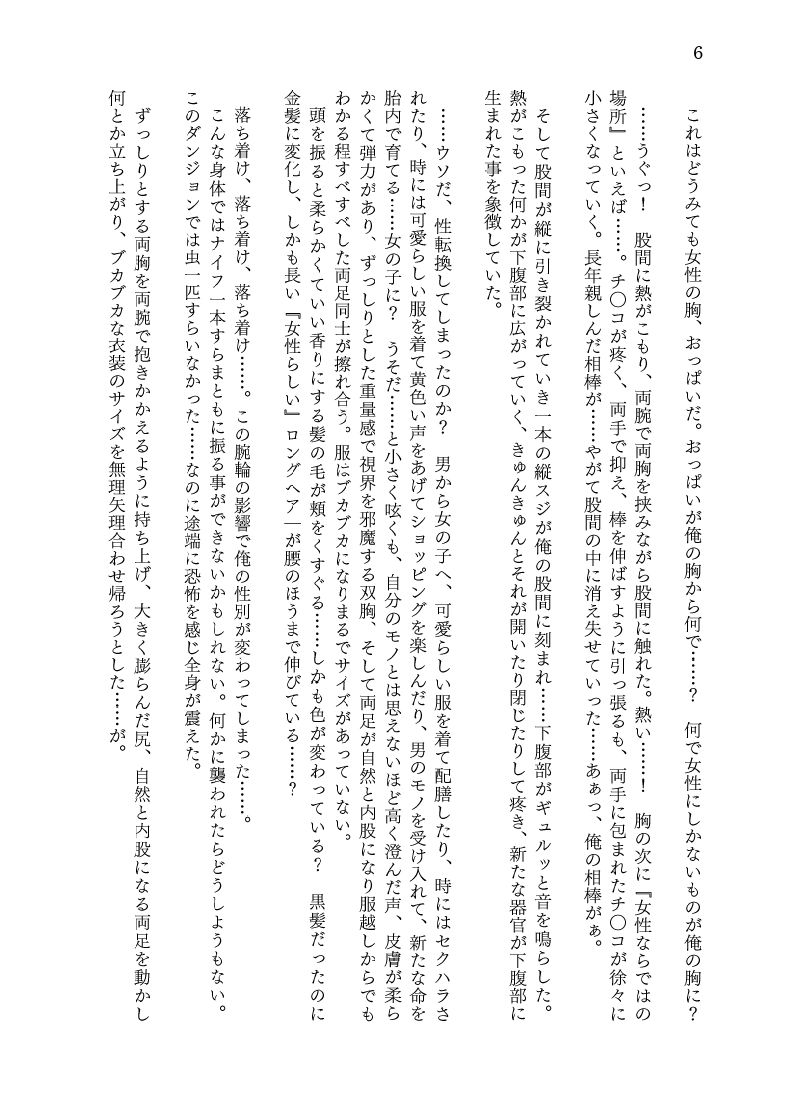 6
これはどうみても女性の胸、おっぱいだ。おっぱいが俺の胸から何で……？　何で女性にしかないものが俺の胸に？
……うぐっ！　股間に熱がこもり、両腕で両胸を挟みながら股間に触れた。熱い……！　胸の次に『女性ならではの
場所』といえば……。チ〇コが疼く、両手で抑え、棒を伸ばすように引っ張るも、両手に包まれたチ〇コが徐々に
小さくなっていく。長年親しんだ相棒が……やがて股間の中に消え失せていった……あぁっ、俺の相棒がぁ。
そして股間が縦に引き裂かれていき一本の縦スジが俺の股間に刻まれ……下腹部がギュルッと音を鳴らした。
熱がこもった何かが下腹部に広がっていく、きゅんきゅんとそれが開いたり閉じたりして疼き、新たな器官が下腹部に
生まれた事を象徴していた。
……ウソだ、性転換してしまったのか？　男から女の子へ、可愛らしい服を着て配膳したり、時にはセクハラさ
れたり、時には可愛らしい服を着て黄色い声をあげてショッピングを楽しんだり、男のモノを受け入れて、新たな命を
胎内で育てる……女の子に？　うそだ……と小さく呟くも、自分のモノとは思えないほど高く澄んだ声、皮膚が柔ら
かくて弾力があり、ずっしりとした重量感で視界を邪魔する双胸、そして両足が自然と内股になり服越しからでも
わかる程すべすべした両足同士が擦れ合う。服はブカブカになりまるでサイズがあっていない。
頭を振ると柔らかくていい香りにする髪の毛が頬をくすぐる……しかも色が変わっている？　黒髪だったのに
金髪に変化し、しかも長い『女性らしい』ロングヘア―が腰のほうまで伸びている……？
落ち着け、落ち着け、落ち着け……。この腕輪の影響で俺の性別が変わってしまった……。
こんな身体ではナイフ一本すらまともに振る事ができないかもしれない。何かに襲われたらどうしようもない。
このダンジョンでは虫一匹すらいなかった……なのに途端に恐怖を感じ全身が震えた。
ずっしりとする両胸を両腕で抱きかかえるように持ち上げ、大きく膨らんだ尻、自然と内股になる両足を動かし
何とか立ち上がり、ブカブカな衣装のサイズを無理矢理合わせ帰ろうとした……が。